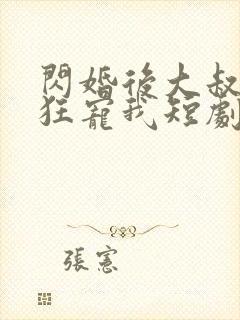 閃婚後大叔
狂寵我短劇
張憲